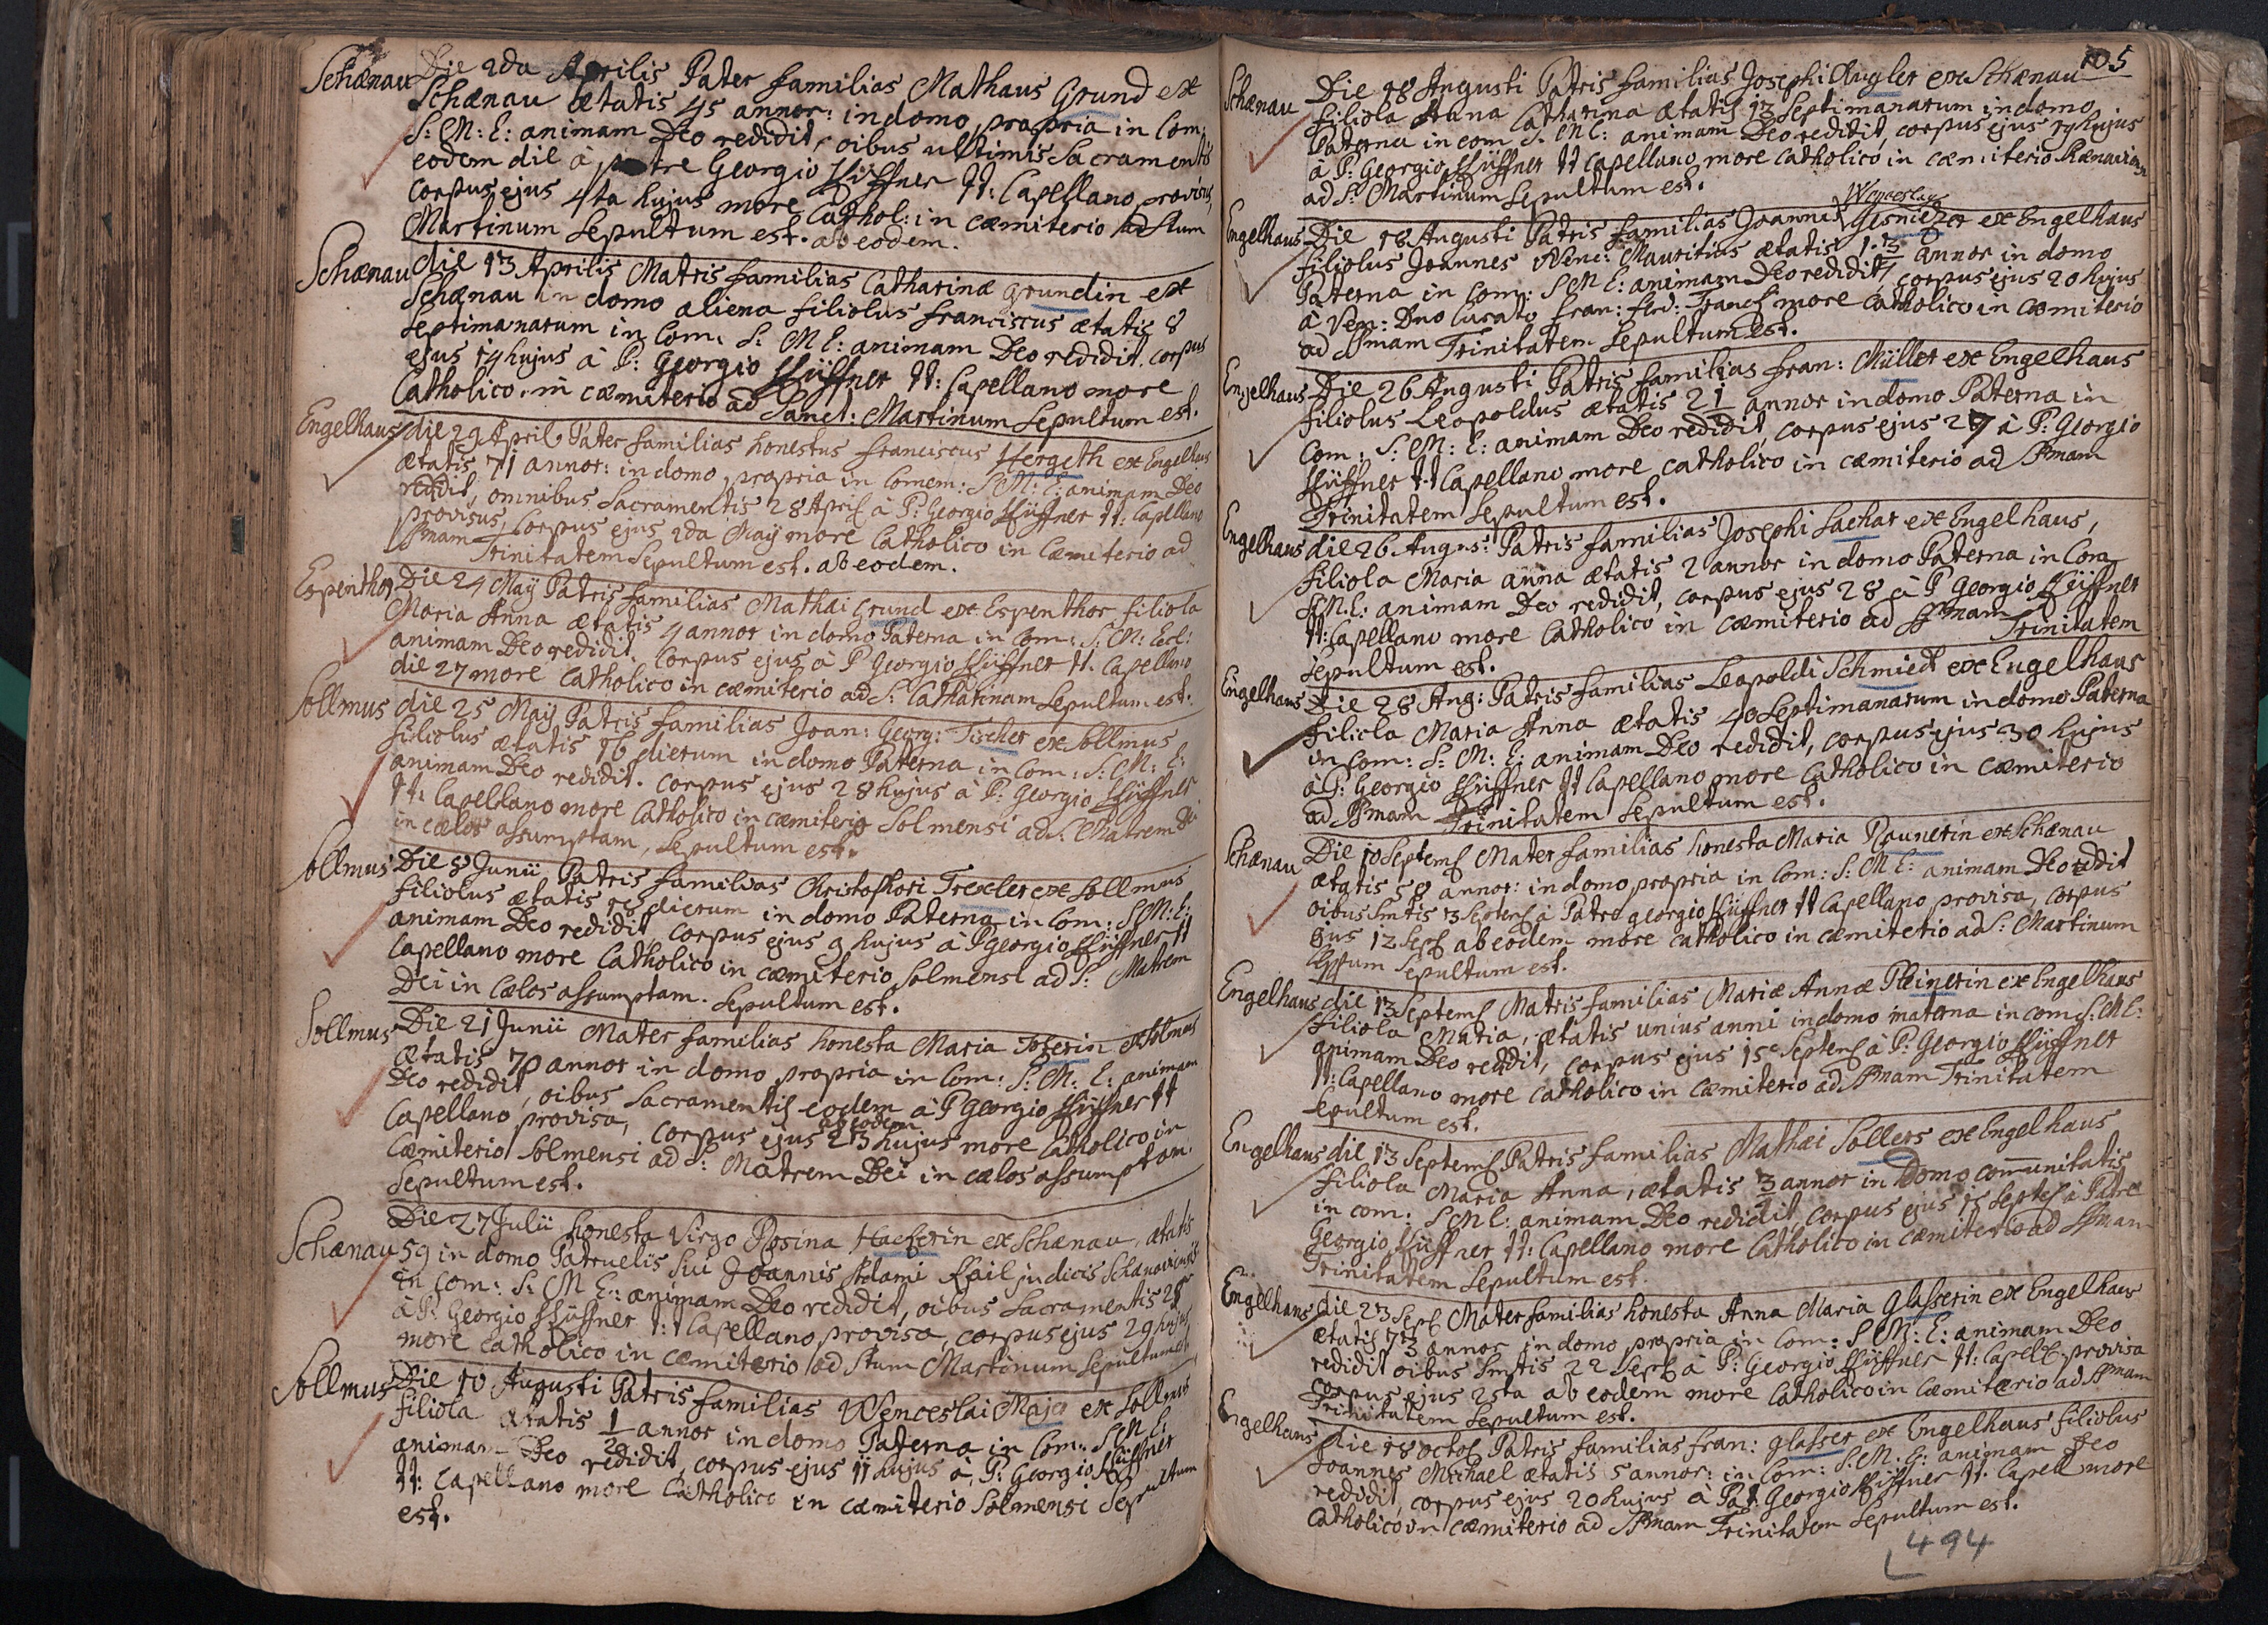 Schænau Die 2da Aprilis Pater familias Mathaus Grund ex
Schænau ætatis 45 annor: in domo propria in Com.
S: M: E: animam Deo redidit, oibus ultimis Sacramentis
eodem die à patre Georgio Hüffner tt: Capellano provisus,
corpus ejus 4ta hujus more Cathol: in cæmiterio ad Stum
Martinum Sepultum est. ab eodem.
Schænau die 13 Aprilis Matris familias Catharinæ Grundin ex
Schænau in domo aliena filiolus Franciscus ætatis 8
Septimanarum in Com. S: M E: animam Deo redidit. corpus
ejus 14 hujus à P: Georgio Hüffner tt: Capellano more
Catholico in cæmiterio ad Sanct: Martinum Sepultum est.
Engelhaus die 29 April Pater familias honestus Franciscus Hergeth ex Engelhaus
ætatis 71 annor: in domo propria in Comem: S: M: E: animam Deo
redidit, omnibus Sacramentis 28 April à P: Georgio Hüffner tt: Capellano
provisus, Corpus ejus 2da Maÿ more Catholico in Cæmiterio ad
SSmam Trinitatem Sepultum est. ab eodem.
Espenthor Die 24 Maÿ Patris familias Mathai Grund ex Espenthor filiola
Maria Anna ætatis 4 annor in domo Paterna in Com: S: M: Ecl:
animam Deo redidit. Corpus ejus à P Georgio Hüffner tt. Capellano
die 27 more Catholico in cæmiterio ad S: Catharinam Sepultum est.
Sollmus die 25 Maÿ Patris familias Joan: Georg: Tischer ex Sollmus
filiolus ætatis 16 dierum in domo Paterna in Com: S: M: E:
animam Deo redidit. corpus ejus 28 hujus à P: Georgio Hüffner
tt: Capellano more Catholico in cæmiterio Solmensi ad S. Matrem Dei
in cælos assumptam, Sepultum est.
Sollmus Die 8 Junii Patris familias Christophori Trexler ex Sollmus
filiolus ætatis dierum in domo Paterna in Com: S: M: E:
animam Deo redidit, corpus ejus 9 hujus à P Georgio Hüffner tt
Capellano more Catholico in cæmiterio Solmensi ad S: Matrem
Dei in Cælos assumptam. Sepultum est.
Sollmus Die 21 Junii Mater familias honesta Maria ex Solmus
Ætatis 70 annor in domo propria in Com: S: M: E: animam
Deo redidit, oibus Sacramentis eodem à P Georgio Hüffner tt
Capellano provisa, corpus ejus ab eodem 23 hujus more Catholico in
Cæmiterio Solmensi ad S: Matrem Dei in cælos assumptam.
Sepultum est.
Die 27 Julii honesta Virgo Rosina Hackerin ex Schænau, ætatis
Schænau 59 in domo Patruelis Sui Joannis Adami Kail judicis Schænaviensis
in Com: S: M E: animam Deo redidit, oibus Sacramentis 28
à P: Georgio Hüffner t:t Capellano provisa, corpus ejus 29 hujus
more Catholico in cæmiterio ad Stum Martinum Sepultum est
Sollmus Die 10 Augusti Patris familias Wenceslai Majer ex Sollmus
filiola ætatis 1/2 annor in domo Paterna in Com: S: M E:
animam Deo redidit, corpus ejus 11 hujus à P: Georgio Hüffner
tt: Capellano more Catholico in cæmiterio Solmensi Sepultum
est.
105
Schænau Die 18 Augusti Patris familias Josephi Kugler ex Schænau
filiola Anna Catharina ætatis 13 Septimanarum in domo
Paterna in com S: M E: animam Deo redidit, corpus ejus 19 hujus
à P: Georgio Hüffner tt Capellano more Catholico in cæmiterio Schænaviensi
ad S: Martinum Sepultum est.
Wenceslay
Engelhaus Die 18 Augusti Patris familias Joannis ex Engelhaus
filiolus Joannes Wenc: Mauritius ætatis annor in domo
Paterna in Com: S M E: animam Deo redidit, corpus ejus 20 hujus
à Ven: Dno Curato Fran: Ferd: Franck more Catholico in cæmiterio
ad SSmam Trinitatem Sepultum est.
Engelhaus Die 26 Augusti Patris familias Fran: Müller ex Engelhaus
filiolus Leopoldus ætatis 2 1 annor in domo Paterna in
Com: S: M: E: animam Deo redidit, corpus ejus 27 à P: Georgio
Hüffner tt Capellano more catholico in cæmiterio ad SSmam
Trinitatem Sepultum est.
Engelhaus die 26 Augus: Patris familias Josephi Sachar ex Engelhaus,
filiola Maria Anna ætatis 2 annor in domo Paterna in Com
S: M: E: animam Deo redidit, corpus ejus 28 à P Georgio Hüffner
tt: Capellano more Catholico in cæmiterio ad SSmam Trinitatem
Sepultum est.
Engelhaus Die 28 Aug: Patris familias Leopoldi Schmiedt ex Engelhaus
filiola Maria Anna ætatis 40 Septimanarum in domo Paterna
in Com: S: M: E: animam Deo redidit, corpus ejus 30 hujus
à P: Georgio Hüffner tt Capellano more Catholico in cæmiterio
ad SSmam Trinitatem Sepultum est.
Schænau Die 10 Septemb Mater familias honesta Maria Raunerin ex Schænau
ætatis 58 annor: in domo propria in Com: S: M E: animam Deo redidit
oibus Smtis Septemb à Patre Georgio Hüffner tt Capellano provisa, corpus
ejus 12 Septb ab eodem more catholico in cæmiterio ad S: Martinum
Sepultum est.
Engelhaus die 13 Septemb Matris familias Mariæ Annæ Pleinerin ex Engelhaus
filiola Maria, ætatis unius anni in domo materna in com S: M E:
animam Deo redidit, corpus ejus 15 Septemb à P: Georgio Hüffner
tt: Capellano more catholico in cæmiterio ad SSmam Trinitatem
sepultum est.
Engelhaus die 13 Septemb Patris familias Mathæi Sollers ex Engelhaus
filiola Maria Anna, ætatis annor in Domo communitatis
in com. S M E: animam Deo redidit, corpus ejus 15 Septeb à Patre
Georgio Hüffner tt: Capellano more Catholico in cæmiterio ad SSmam
Trinitatem Sepultum est.
Engelhaus die 23 Septb Mater familias honesta Anna Maria Glasserin ex Engelhaus
ætatis 73 annor in domo propria in Com: S M: E: animam Deo
redidit oibus Smtis 22 Septb à P: Georgio Hüffner tt: Capell: provisa
corpus ejus 25ta ab eodem more Catholico in Cæmiterio ad SSmam
Trinitatem Sepultum est.
Engelhaus die 18 octob Patris familias Fran: Glasser ex Engelhaus filiolus
Joannes Michael ætatis 5 annor: in Com: S: M: E: animam Deo
redidit, corpus ejus 20 hujus à Pat: Georgio Hüffner tt. Capell more
Catholico in cæmiterio ad SSmam Trinitatem Sepultum est.
494